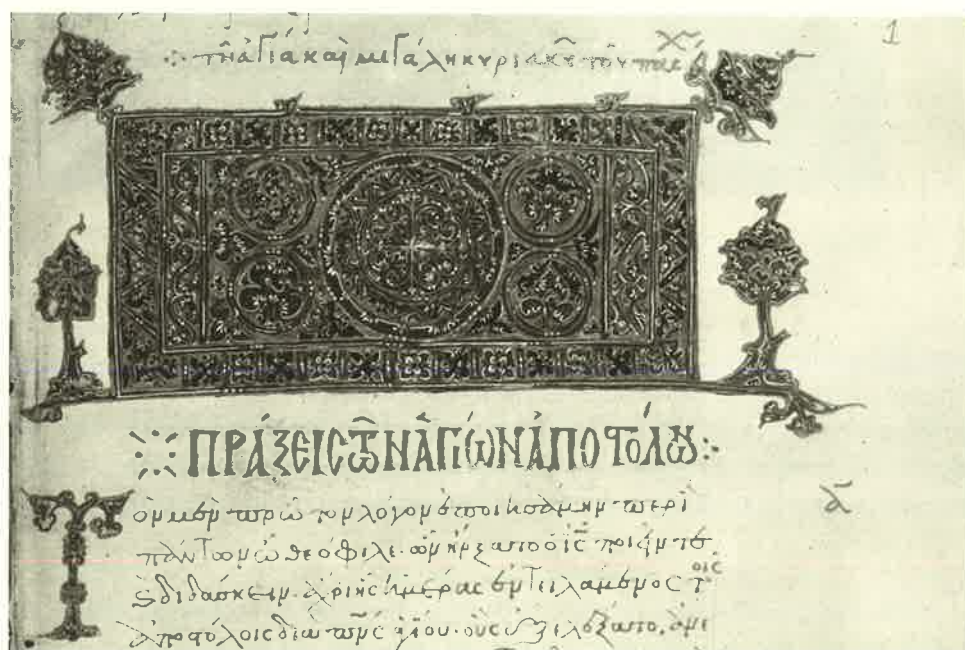 1
τῇ ἁγίᾳ καὶ μεγάλῃ κυριακῇ τοῦ πασχ
ΠΡΆΞΕΙΣ ΤῶΝ ἉΓΊΩΝ ἈΠΟΣΤΌΛΩΝ
Τὸν μὲν πρῶτον λόγον ἐποιησάμην περὶ
πάντων ὦ θεόφιλε· ὧν ἤρξατο ὁ ι̅ς̅ ποιεῖν τε
ϗ διδάσκειν· ἄχρι ἧς ἡμέρας ἐντειλάμενος τοῖς
ἀποστόλοις διὰ π̅ν̅ς̅ ἁγίου· οὓς ἐξελέξατο,
α